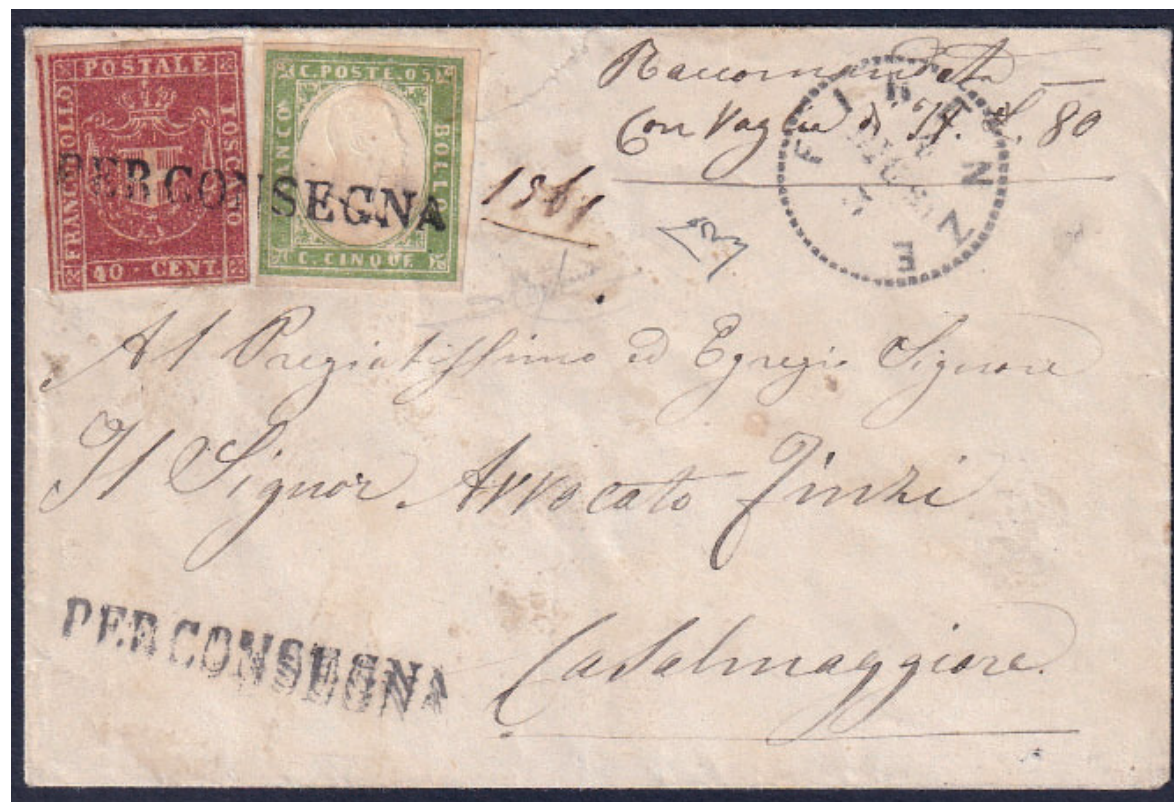 POSTALE
FRANCOBOLLO
TOSCANO
40 CENT.
C. POSTE. 05
FRANCO
BOLLO
C. CINQUE
PER CONSEGNA
1861
Raccomandata
Con Vaglia di L. 80
FIRENZE
Al Pregiatissimo ed Egregio Signore
Il Signor Avvocato Finzi
PER CONSEGNA
Casalmaggiore